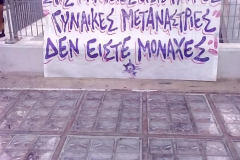 ΓΥΝΑΙΚΕΣ ΜΕΤΑΝΑΣΤΡΙΕΣ
ΔΕΝ ΕΙΣΤΕ ΜΟΝΑΧΕΣ